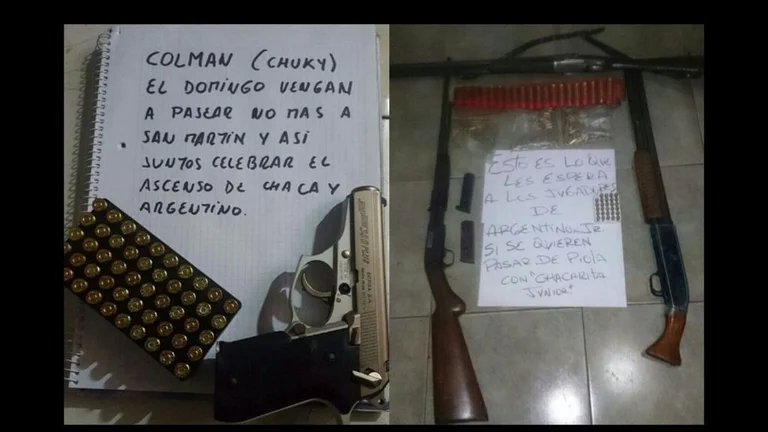 COLMAN (CHUKY)
EL DOMINGO VENGAN
A PASEAR NO MAS A
SAN MARTIN Y ASI
JUNTOS CELEBRAR EL
ASCENSO DE CHACA Y
ARGENTINO.
ESTO ES LO QUE
LES ESPERA
A LOS JUGADORES
DE
ARGENTINO JR
SI SE QUIEREN
PASAR DE PIOLA
CON "CHACARITA
JUNIOR"